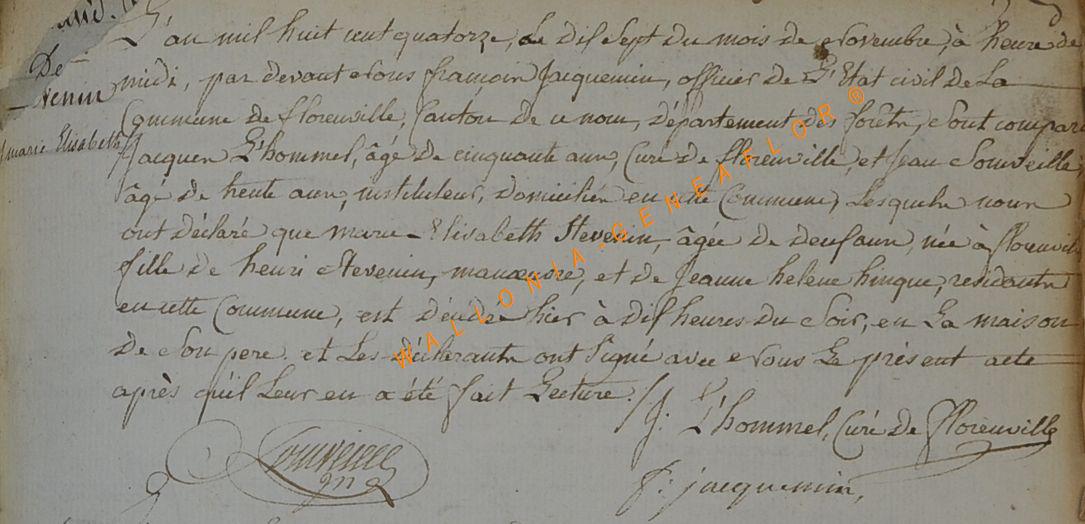 De
Stevenin
marie Elisabeth
L'an mil huit cent quatorze, le dix sept du mois de Novembre, à heure de
midi, par devant Nous françois Jacquemin, officier de L'Etat civil de La
Commune de florenville, Canton de ce nom, département des forêts, sont compar
Jacques L'hommel, âgé de cinquante ans, Curé de florenville, et Jean Souveille,
âgé de trente ans, instituteur, domiciliés en cette Commune, Lesquels nous
ont déclaré que marie-Elisabeth Stevenin, âgée de deux ans, née à florenville
fille de henri Stevenin, manoeuvre, et de Jeanne helene hinque, residants
en cette Commune, est décédée hier à dix heures du Soir, en La maison
de Son pere. et Les déclarants ont Signé avec Nous Le présent acte
après qu'il Leur en a été fait Lecture. /
J: L'hommel, Curé de florenville
f: jacquemin,
WALLONIA-GENEAFLOR®